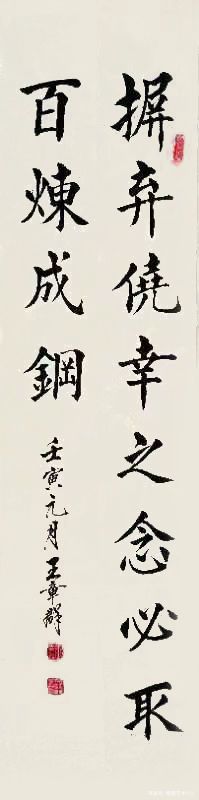 摒弃僥幸之念必取
百煉成鋼
壬寅元月王章群